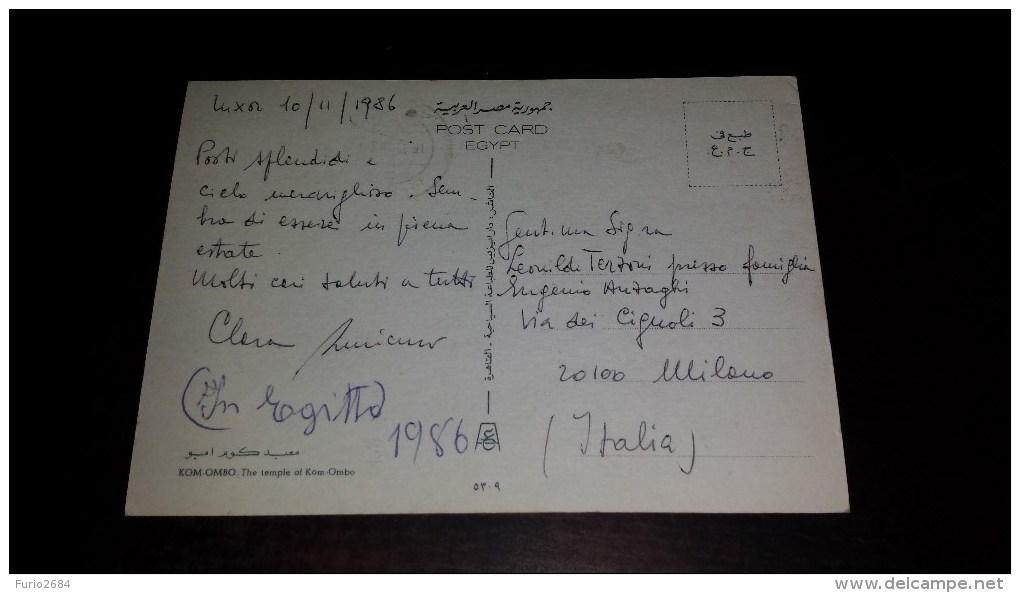 Luxor 10/11/1986
Posti splendidi e
cielo meraviglioso. Sem-
bra di essere in piena
estate.
Molti cari saluti a tutti
Clara
(In Egitto)
1986
معبد كوم امبو
KOM-OMBO The temple of Kom-Ombo
جمهورية مصر العربية
POST CARD
EGYPT
٥٣٠٩
طبع في
ج.م.ع
Gent.ma Sig.ra
Leonilde Terzoni presso famiglia
Eugenio
Via dei Cignoli 3
20100 Milano
(Italia)
Furio2684
www.delcampe.net